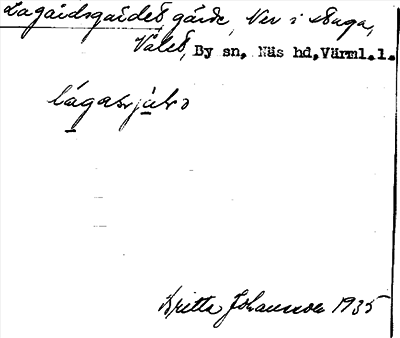 Lagårdsgärdet gärde, Ner i stuga,
Valet, By sn, Näs hd, Värml.l.
Britta Johansson 1935